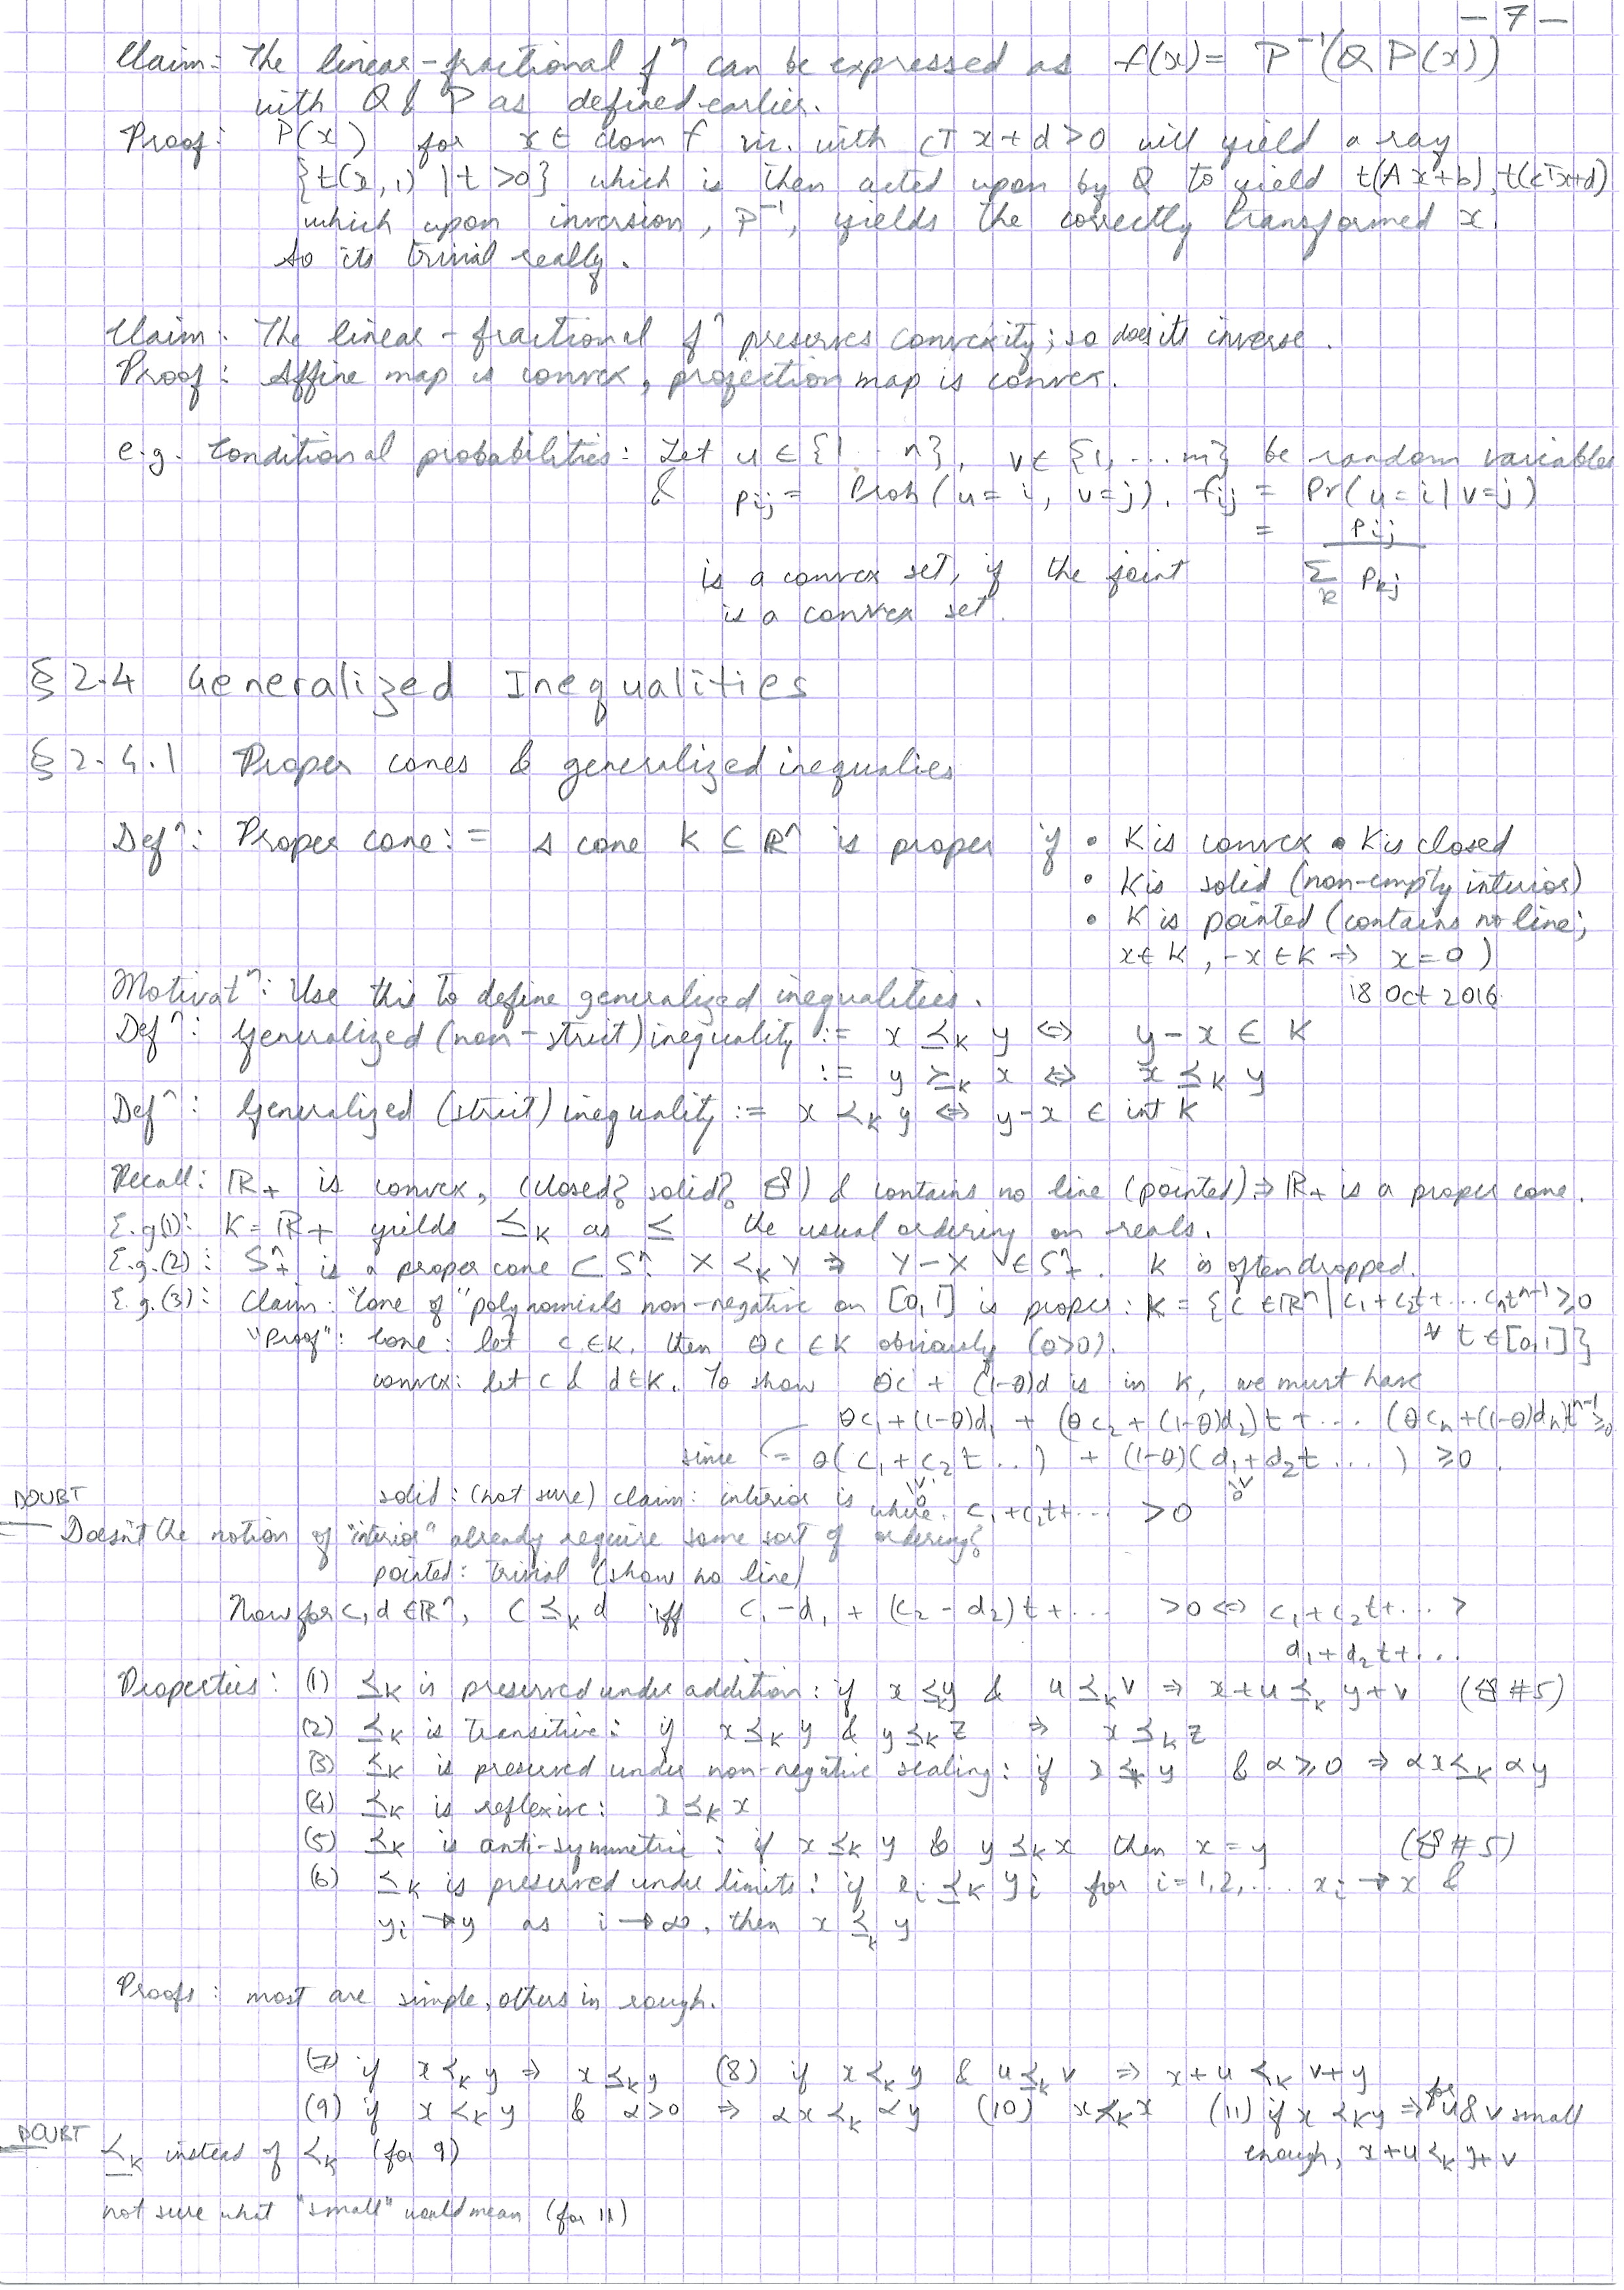 — 7 —
Claim: The linear-fractional fⁿ can be expressed as f(x) = P⁻¹(Q P(x))
with Q & P as defined earlier.
Proof: P(x) for x ∈ dom f viz. with cᵀx + d > 0 will yield a ray
{t(x,1) | t > 0} which is then acted upon by Q to yield t(Ax+b), t(cᵀx+d)
which upon inversion, P⁻¹, yields the correctly transformed x.
So its trivial really.
Claim: The linear-fractional fⁿ preserves convexity; so does its inverse.
Proof: Affine map is convex, projection map is convex.
e.g. Conditional probabilities: Let u ∈ {1 ... n}, v ∈ {1, ... m} be random variables
& pij = Prob(u = i, v = j). fij = Pr(u = i | v = j)
= pij
is a convex set, if the joint Σk pkj
is a convex set.
§ 2.4 Generalized Inequalities
§ 2.4.1 Proper cones & generalized inequalies
Defⁿ: Proper cone := A cone K ⊆ ℝⁿ is proper if • K is convex • K is closed
• K is solid (non-empty interior)
• K is pointed (contains no line;
x ∈ K, -x ∈ K ⇒ x = 0)
Motivatⁿ: Use this to define generalized inequalities. 18 Oct 2016
Defⁿ: Generalized (non-strict) inequality := x ≤K y ⇔ y - x ∈ K
:= y ≥K x ⇔ x ≤K y
Defⁿ: Generalized (strict) inequality := x <K y ⇔ y - x ∈ int K
Recall: ℝ+ is convex, (closed? solid?) & contains no line (pointed) ⇒ ℝ+ is a proper cone.
E.g(1): K = ℝ+ yields ≤K as ≤ the usual ordering on reals.
E.g.(2): Sⁿ+ is a proper cone ⊂ Sⁿ. X ≤K Y ⇒ Y - X ∈ Sⁿ+. K is often dropped.
E.g.(3): Claim: "Cone of" polynomials non-negative on [0,1] is proper: K = {c ∈ ℝⁿ | c1 + c2t + ... cntⁿ⁻¹ ≥ 0
∀ t ∈ [0,1]}
"Proof": Cone: let c ∈ K, then θc ∈ K obviously (θ>0).
convex: let c & d ∈ K. To show θc + (1-θ)d is in K, we must have
θc1 + (1-θ)d1 + (θc2 + (1-θ)d2)t + ... (θcn + (1-θ)dn)tⁿ⁻¹ ≥ 0
since = θ(c1 + c2t ...) + (1-θ)(d1 + d2t ...) ≥ 0.
solid: (not sure) claim: interior is where c1 + c2t + ... > 0
DOUBT
— Doesn't the notion of "interior" already require some sort of ordering?
pointed: trivial (show no line)
Now for c, d ∈ ℝⁿ, c ≤K d iff c1 - d1 + (c2 - d2)t + ... > 0 ⇔ c1 + c2t + ... >
d1 + d2t + ...
Properties: (1) ≤K is preserved under addition: if x ≤K y & u ≤K v ⇒ x+u ≤K y+v (#5)
(2) ≤K is transitive: if x ≤K y & y ≤K z ⇒ x ≤K z
(3) ≤K is preserved under non-negative scaling: if x ≤K y & α ≥ 0 ⇒ αx ≤K αy
(4) ≤K is reflexive: x ≤K x
(5) ≤K is anti-symmetric: if x ≤K y & y ≤K x then x = y (#5)
(6) ≤K is preserved under limits: if xi ≤K yi for i = 1,2,... xi → x &
yi → y as i → ∞, then x ≤K y
Proofs: most are simple, others in rough.
(7) if x <K y ⇒ x ≤K y (8) if x <K y & u ≤K v ⇒ x+u <K v+y
(9) if x <K y & α>0 ⇒ αx <K αy (10) x ≮K x (11) if x <K y ⇒ for u & v small
enough, x+u <K y+v
DOUBT
≤K instead of <K (for 9)
not sure what "small" would mean (for 11)